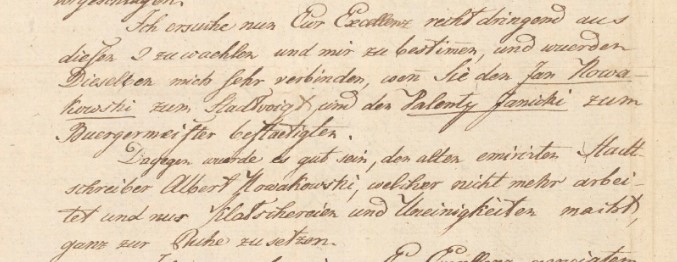 vorgeschlagen.
Ich ersuche nun Eur Excellenz recht dringend aus
diesen 2 zu waehlen und mir zu bestimen, und wuerden
Dieselben mich sehr verbinden, wen Sie den Jan Nowa-
kowski zum Stadtvoigt, und den Valenty Janicki zum
Buergermeister bestaetigten.
Dagegen wurde es gut sein, den alten emirirten Stadt-
schreiber Albert Nowakowski, welcher nicht mehr arbei-
tet und nur Klatschereien und Uneinigkeiten macht,
ganz zur Ruhe zu setzen.
Excellenz